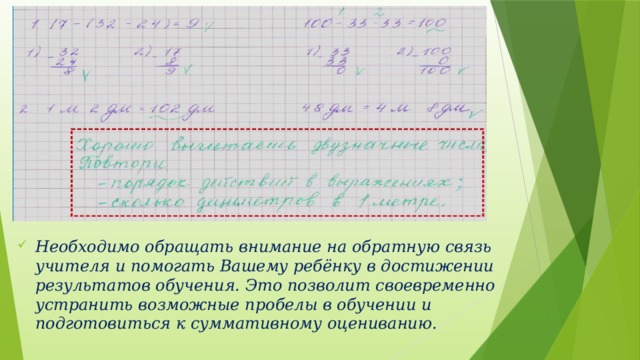 1 17 - (32 - 24) = 9 √ 100 - 33 - 33 = 100
1) - 32 2) - 17 1) - 33 2) - 100
24 8 33 0
8 √ 9 √ 0 √ 100 √
2 1 м 2 дм = 102 дм 48 дм = 4 м 8 дм √
Хорошо вычитаешь двузначные числа
Повтори
- порядок действий в выражениях;
- сколько дециметров в 1 метре.
✓ Необходимо обращать внимание на обратную связь
учителя и помогать Вашему ребёнку в достижении
результатов обучения. Это позволит своевременно
устранить возможные пробелы в обучении и
подготовиться к суммативному оцениванию.